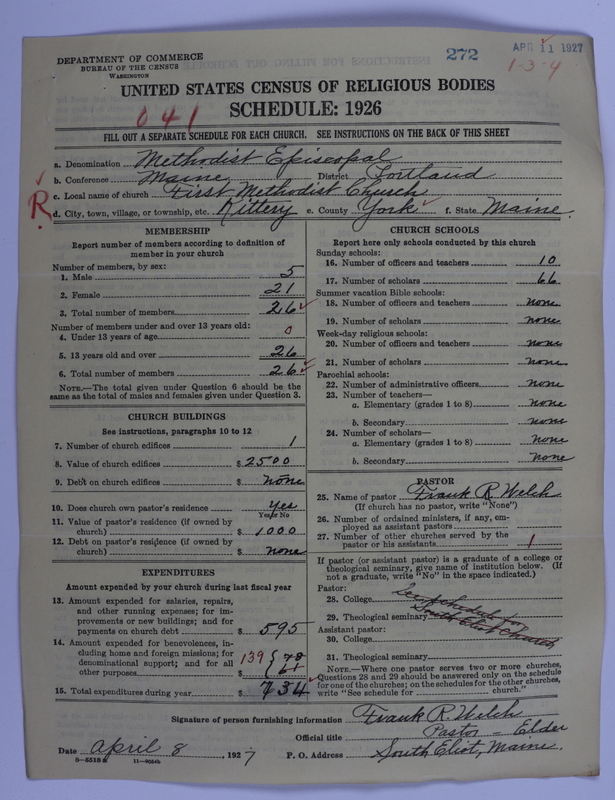 272
APR 11 1927
1-3-4
DEPARTMENT OF COMMERCE
BUREAU OF THE CENSUS
WASHINGTON
UNITED STATES CENSUS OF RELIGIOUS BODIES
041
SCHEDULE: 1926
FILL OUT A SEPARATE SCHEDULE FOR EACH CHURCH. SEE INSTRUCTIONS ON THE BACK OF THIS SHEET
a. Denomination Methodist Episcopal
b. Conference Maine District Portland
c. Local name of church First Methodist Church
R.
d. City, town, village, or township, etc. Kittery e. County York f. State Maine.
MEMBERSHIP
Report number of members according to definition of
member in your church
Number of members, by sex:
1. Male 5
2. Female 21
3. Total number of members 26
Number of members under and over 13 years old:
4. Under 13 years of age 0
5. 13 years old and over 26
6. Total number of members 26
NOTE.—The total given under Question 6 should be the
same as the total of males and females given under Question 3.
CHURCH BUILDINGS
See instructions, paragraphs 10 to 12
7. Number of church edifices 1
8. Value of church edifices $ 2500
9. Debt on church edifices $ none
10. Does church own pastor's residence Yes
Yes or No
11. Value of pastor's residence (if owned by
church) $ 1000
12. Debt on pastor's residence (if owned by
church) $ none
EXPENDITURES
Amount expended by your church during last fiscal year
13. Amount expended for salaries, repairs,
and other running expenses; for im-
provements or new buildings; and for
payments on church debt $ 595
14. Amount expended for benevolences, in-
cluding home and foreign missions; for
denominational support; and for all
other purposes $
139 { 78
61
15. Total expenditures during year $ 734
CHURCH SCHOOLS
Report here only schools conducted by this church
Sunday schools:
16. Number of officers and teachers 10
17. Number of scholars 66
Summer vacation Bible schools:
18. Number of officers and teachers none
19. Number of scholars none
Week-day religious schools:
20. Number of officers and teachers none
21. Number of scholars none
Parochial schools:
22. Number of administrative officers none
23. Number of teachers—
a. Elementary (grades 1 to 8) none
b. Secondary none
24. Number of scholars—
a. Elementary (grades 1 to 8) none
b. Secondary none
PASTOR
25. Name of pastor Frank R. Welch
(If church has no pastor, write "None")
26. Number of ordained ministers, if any, em-
ployed as assistant pastors
27. Number of other churches served by the
pastor or his assistants 1
If pastor (or assistant pastor) is a graduate of a college or
theological seminary, give name of institution below. (If
not a graduate, write "No" in the space indicated.)
Pastor:
28. College See schedule for
29. Theological seminary South Eliot Church
Assistant pastor:
30. College
31. Theological seminary
NOTE.—Where one pastor serves two or more churches,
Questions 28 and 29 should be answered only on the schedule
for one of the churches; on the schedules for the other churches,
write "See schedule for church."
Signature of person furnishing information Frank R. Welch
Official title Pastor - Elder
Date April 8, 1927 P. O. Address South Eliot, Maine.
8-5518a 11-9034b